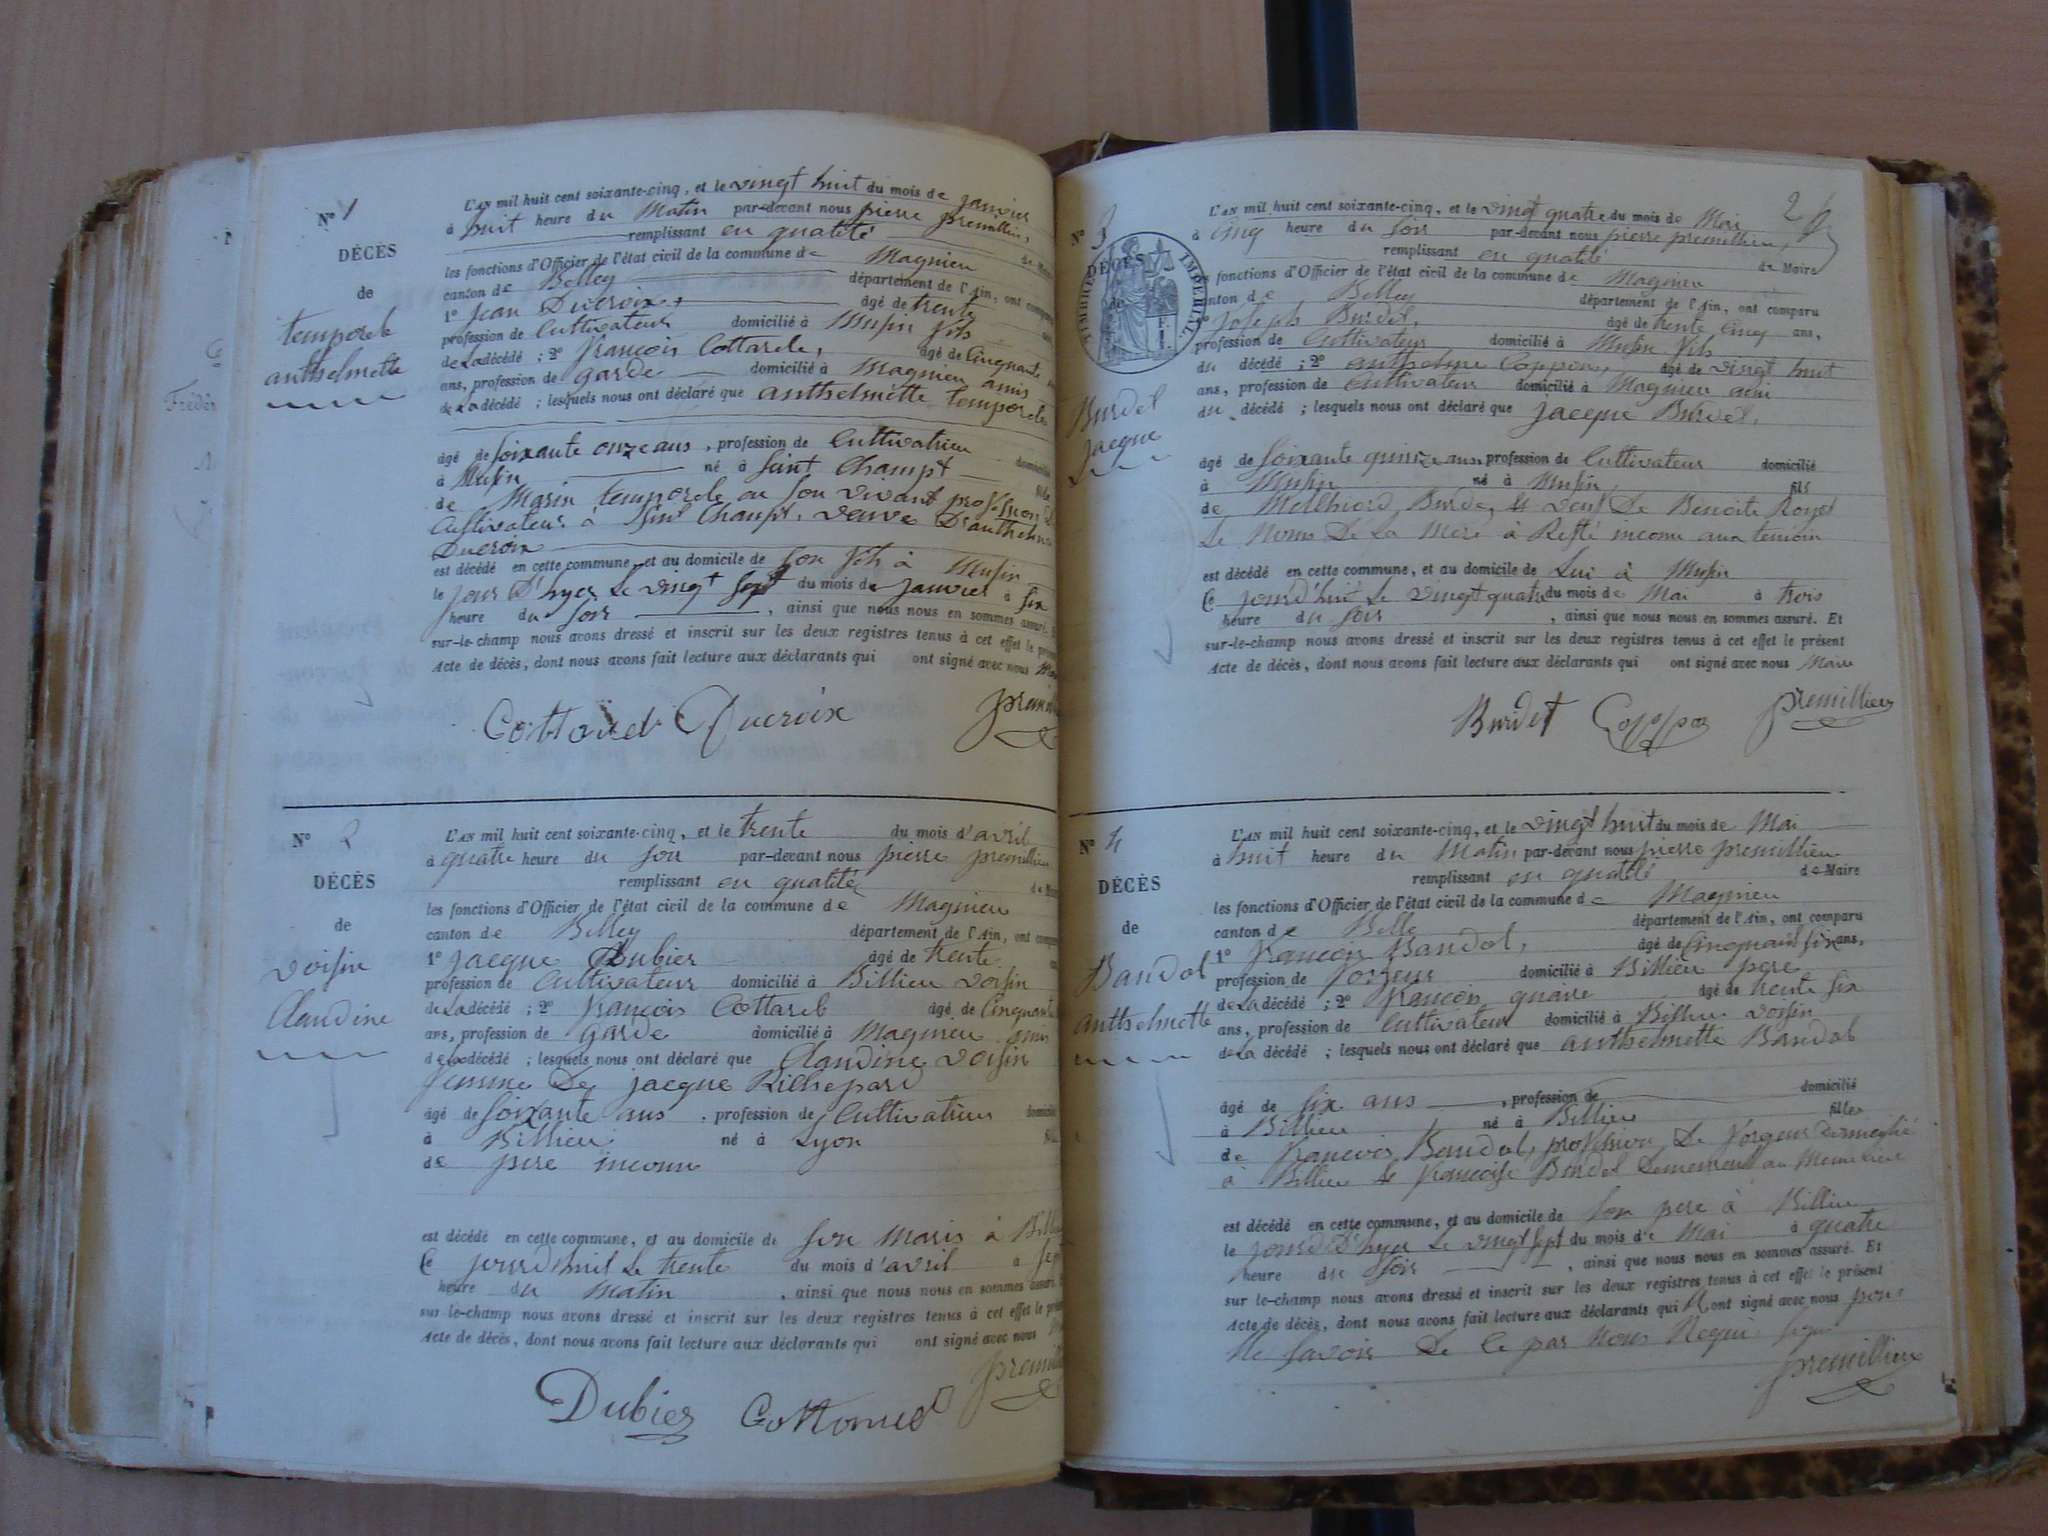 N° 1
DÉCÈS
de
temporel
anthelmette
L'AN mil huit cent soixante-cinq, et le vingt huit du mois de janvier
à huit heure du Matin par-devant nous pierre premillieu,
remplissant en qualité de Maire
les fonctions d'Officier de l'état civil de la commune de Magnieu
canton de Belley département de l'Ain, ont comparu
1° Jean Ducroix, âgé de trente
profession de Cultivateur domicilié à Musin fils
de La décédé ; 2° François Cottarel, âgé de Cinquante
ans, profession de garde domicilié à Magnieu amis
de La décédé ; lesquels nous ont déclaré que anthelmette temporel
âgé de soixante onze ans, profession de Cultivatrice domicilié
à Musin né à Saint Champt fille
de Marin temporel en son vivant profession de
Cultivateur à Sint Champt, veuve D'anthelme
Ducroix
est décédé en cette commune, et au domicile de son fils à Musin
le jour D'hyer Le vingt sept du mois de janvier à six
heure du soir , ainsi que nous nous en sommes assuré. Et
sur-le-champ nous avons dressé et inscrit sur les deux registres tenus à cet effet le présent
Acte de décès, dont nous avons fait lecture aux déclarants qui ont signé avec nous
Cottarel Ducroix
N° 2
DÉCÈS
de
Voisin
Claudine
L'AN mil huit cent soixante-cinq, et le trente du mois d'avril
à quatre heure du soir par-devant nous pierre premillieu
remplissant en qualité de Maire
les fonctions d'Officier de l'état civil de la commune de Magnieu
canton de Belley département de l'Ain, ont comparu
1° jacque Dubier âgé de trente
profession de Cultivateur domicilié à Billieu voisin
de La décédé ; 2° François Cottarel âgé de Cinquante
ans, profession de garde domicilié à Magnieu amis
de La décédé ; lesquels nous ont déclaré que Claudine voisin
femme De jacque Richepard
âgé de soixante ans , profession de Cultivatrice domicilié
à Billieu né à Lyon
de pere inconnu
est décédé en cette commune, et au domicile de son Maris à
le jourd'huit Le trente du mois d'avril à sept
heure du Matin , ainsi que nous nous en sommes assuré. Et
sur-le-champ nous avons dressé et inscrit sur les deux registres tenus à cet effet le présent
Acte de décès, dont nous avons fait lecture aux déclarants qui ont signé avec nous
Dubier Cottarel
N° 3
DÉCÈS
TIMBRE IMPÉRIAL
Burdel
Jacque
2
L'AN mil huit cent soixante-cinq, et le vingt quatre du mois de Mai
à Cinq heure du soir par-devant nous pierre premillieu,
remplissant en qualité de Maire
les fonctions d'Officier de l'état civil de la commune de Magnieu
canton de Belley département de l'Ain, ont comparu
1° Joseph Burdel, âgé de trente Cinq ans,
profession de Cultivateur domicilié à Musin fils
du décédé ; 2° anthelme Coppon, âgé de vingt huit
ans, profession de Cultivateur domicilié à Magnieu ami
du décédé ; lesquels nous ont déclaré que jacque Burdel,
âgé de soixante quinze ans, profession de Cultivateur domicilié
à Musin né à Musin, fils
de Melchiord Burdel et veuf De Benoite Royet
Le Noms De La Mere à Resté inconnu aux temoin
est décédé en cette commune, et au domicile de Lui à Musin
le jourd'huit Le vingt quatre du mois de Mai à trois
heure du soir , ainsi que nous nous en sommes assuré. Et
sur-le-champ nous avons dressé et inscrit sur les deux registres tenus à cet effet le présent
Acte de décès, dont nous avons fait lecture aux déclarants qui ont signé avec nous Maire
Burdet Coppon premillieu
N° 4
DÉCÈS
de
Bandol
anthelmette
L'AN mil huit cent soixante-cinq, et le vingt huit du mois de Mai
à huit heure du Matin par-devant nous pierre premillieu
remplissant en qualité de Maire
les fonctions d'Officier de l'état civil de la commune de Magnieu
canton de Belley département de l'Ain, ont comparu
1° François Bandol, âgé de Cinquante six ans,
profession de Forgeur domicilié à Billieu pere
de La décédé ; 2° François quaire âgé de trente six
ans, profession de Cultivateur domicilié à Billieu voisin
de La décédé ; lesquels nous ont déclaré que anthelmette Bandol
âgé de six ans , profession de domicilié
à Billieu né à Billieu fille
de François Bandol, profession De Forgeur Domicilié
à Billieu et Françoise Burdel Demeurant au Meme lieu
est décédé en cette commune, et au domicile de son pere à Billieu
le jourd D'hyer Le vingt sept du mois de Mai à quatre
heure du soir , ainsi que nous nous en sommes assuré. Et
sur-le-champ nous avons dressé et inscrit sur les deux registres tenus à cet effet le présent
Acte de décès, dont nous avons fait lecture aux déclarants qui N ont signé avec nous pour
Ne savoir De Ce par Nous Requi
premillieu